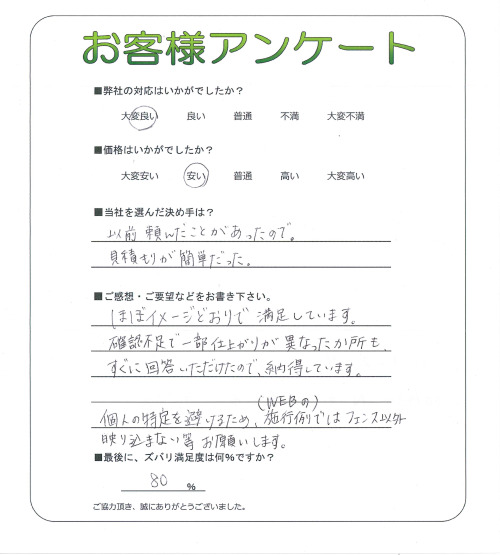 お客様アンケート
■弊社の対応はいかがでしたか？
大変良い 良い 普通 不満 大変不満
■価格はいかがでしたか？
大変安い 安い 普通 高い 大変高い
■当社を選んだ決め手は？
以前頼んだことがあったので。
見積もりが簡単だった。
■ご感想・ご要望などをお書き下さい。
ほぼイメージどおりで満足しています。
確認不足で一部仕上がりが異なったか所も、
すぐに回答いただけたので、納得しています。
(WEBの)
個人の特定を避けるため、施行例ではフェンス以外
映り込まない等お願いします。
■最後に、ズバリ満足度は何%ですか？
80 %
ご協力頂き、誠にありがとうございました。